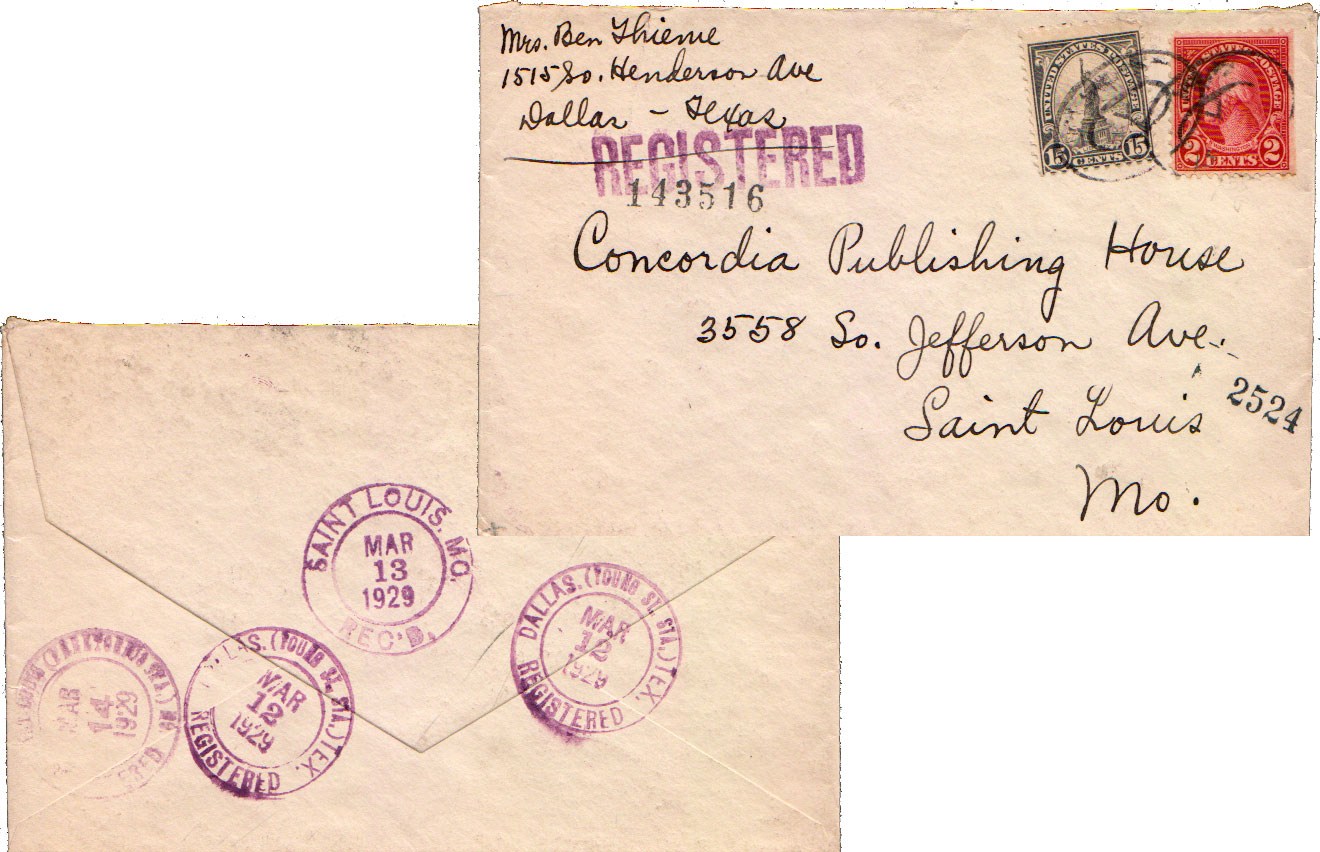 Mrs. Ben Thieme
1515 So. Henderson Ave
Dallas - Texas
REGISTERED
143516
UNITED STATES POSTAGE
15 CENTS 15
UNITED STATES POSTAGE
WASHINGTON
2 CENTS 2
Concordia Publishing House
3558 So. Jefferson Ave.
Saint Louis
Mo.
2524
SAINT LOUIS, MO.
MAR
13
1929
REC'D.
DALLAS. (YOUNG ST. STA.) TEX.
MAR
12
1929
REGISTERED
LAS. (YOUNG ST. STA.) TEX.
MAR
12
1929
REGISTERED
MAR
14
1929